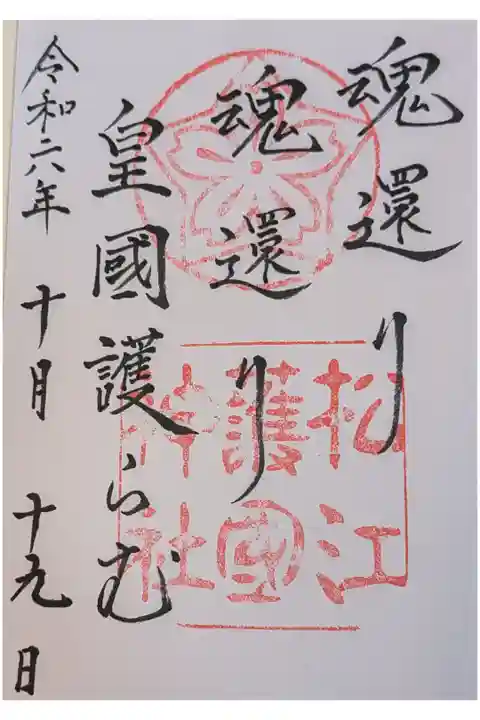 魂還り
魂還り
皇國護らむ
令和六年十月十九日
松江
護國
神社